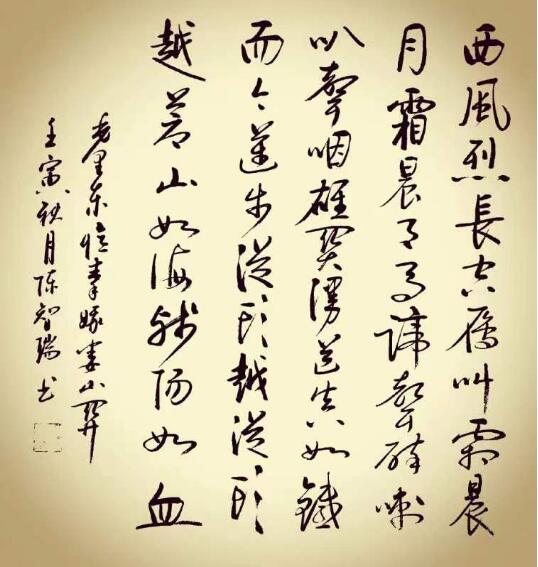 西風烈長空雁叫霜晨
月霜晨月馬蹄聲碎喇
叭聲咽雄關漫道真如鐵
而今邁步從頭越從頭
越蒼山如海殘陽如血
毛澤东憶秦娥娄山關
壬寅秋月陈智瑞书